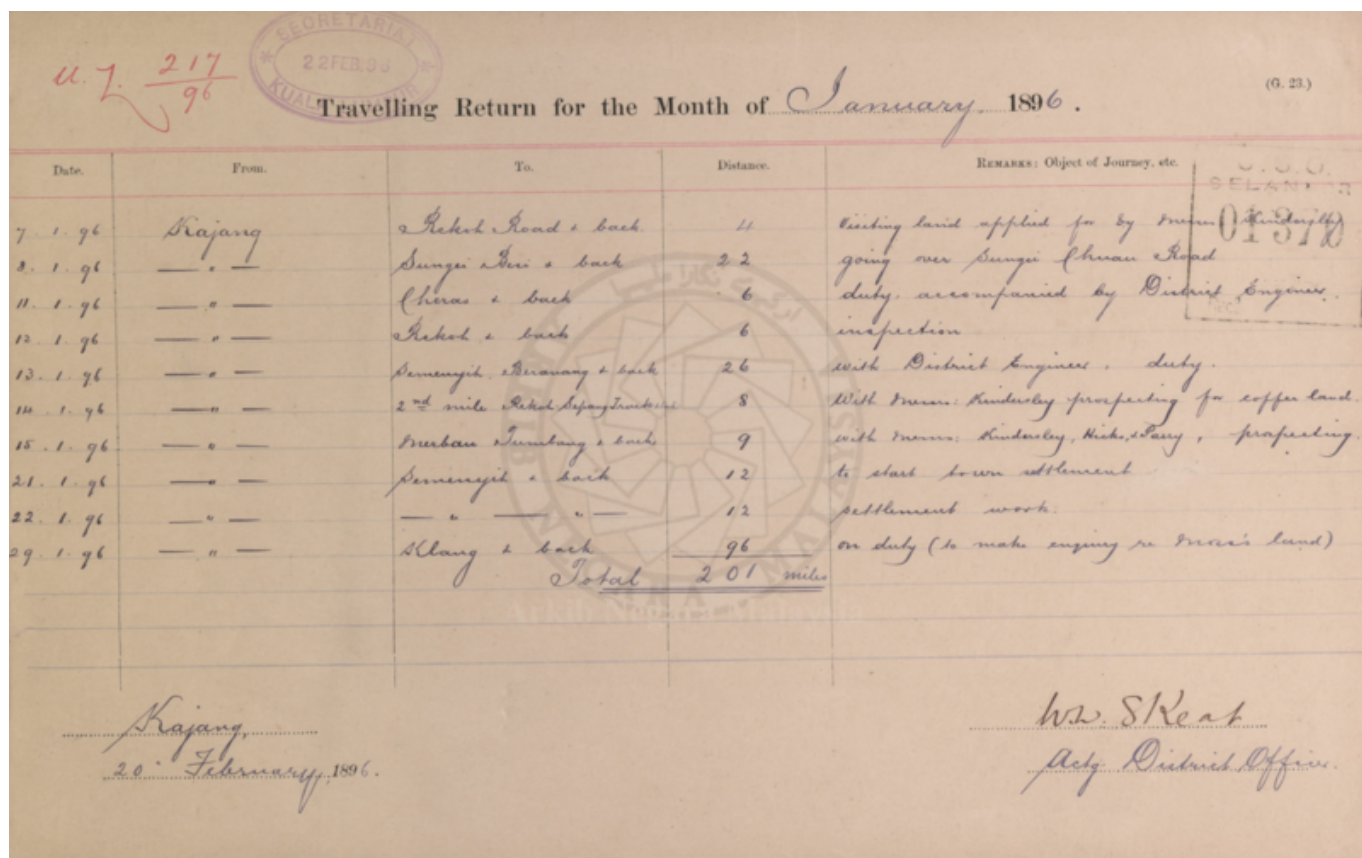 U.L. 217/96
SECRETARIAT
22 FEB. 96
KUALA
(G. 23.)
Travelling Return for the Month of January 1896.
Date. From. To. Distance. REMARKS: Object of Journey, etc.
SELANGOR
7. 1. 96 Kajang Rekoh Road & back 4 Visiting land applied for by Messrs Kindersley
8. 1. 96 — " — Sungei Besi & back 22 going over Sungei Chuau Road
11. 1. 96 — " — Cheras & back 6 duty, accompanied by District Engineer.
12. 1. 96 — " — Rekoh & back 6 inspection
13. 1. 96 — " — Semenyih, Beranang & back 26 with District Engineer, duty.
14. 1. 96 — " — 2nd mile Rekoh Sepang Trace & back 8 With Messrs: Kindersley prospecting for coffee land.
15. 1. 96 — " — Merbau Tumbang & back 9 with Messrs: Kindersley, Hicks, & Parry, prospecting.
21. 1. 96 — " — Semenyih & back 12 to start town settlement
22. 1. 96 — " — — " — — " — 12 settlement work.
29. 1. 96 — " — Klang & back 96 on duty (to make enquiry re land)
Total 201 miles
Arkib Negara Malaysia
Kajang,
20 February, 1896.
W.W. Skeat
Actg. District Officer.